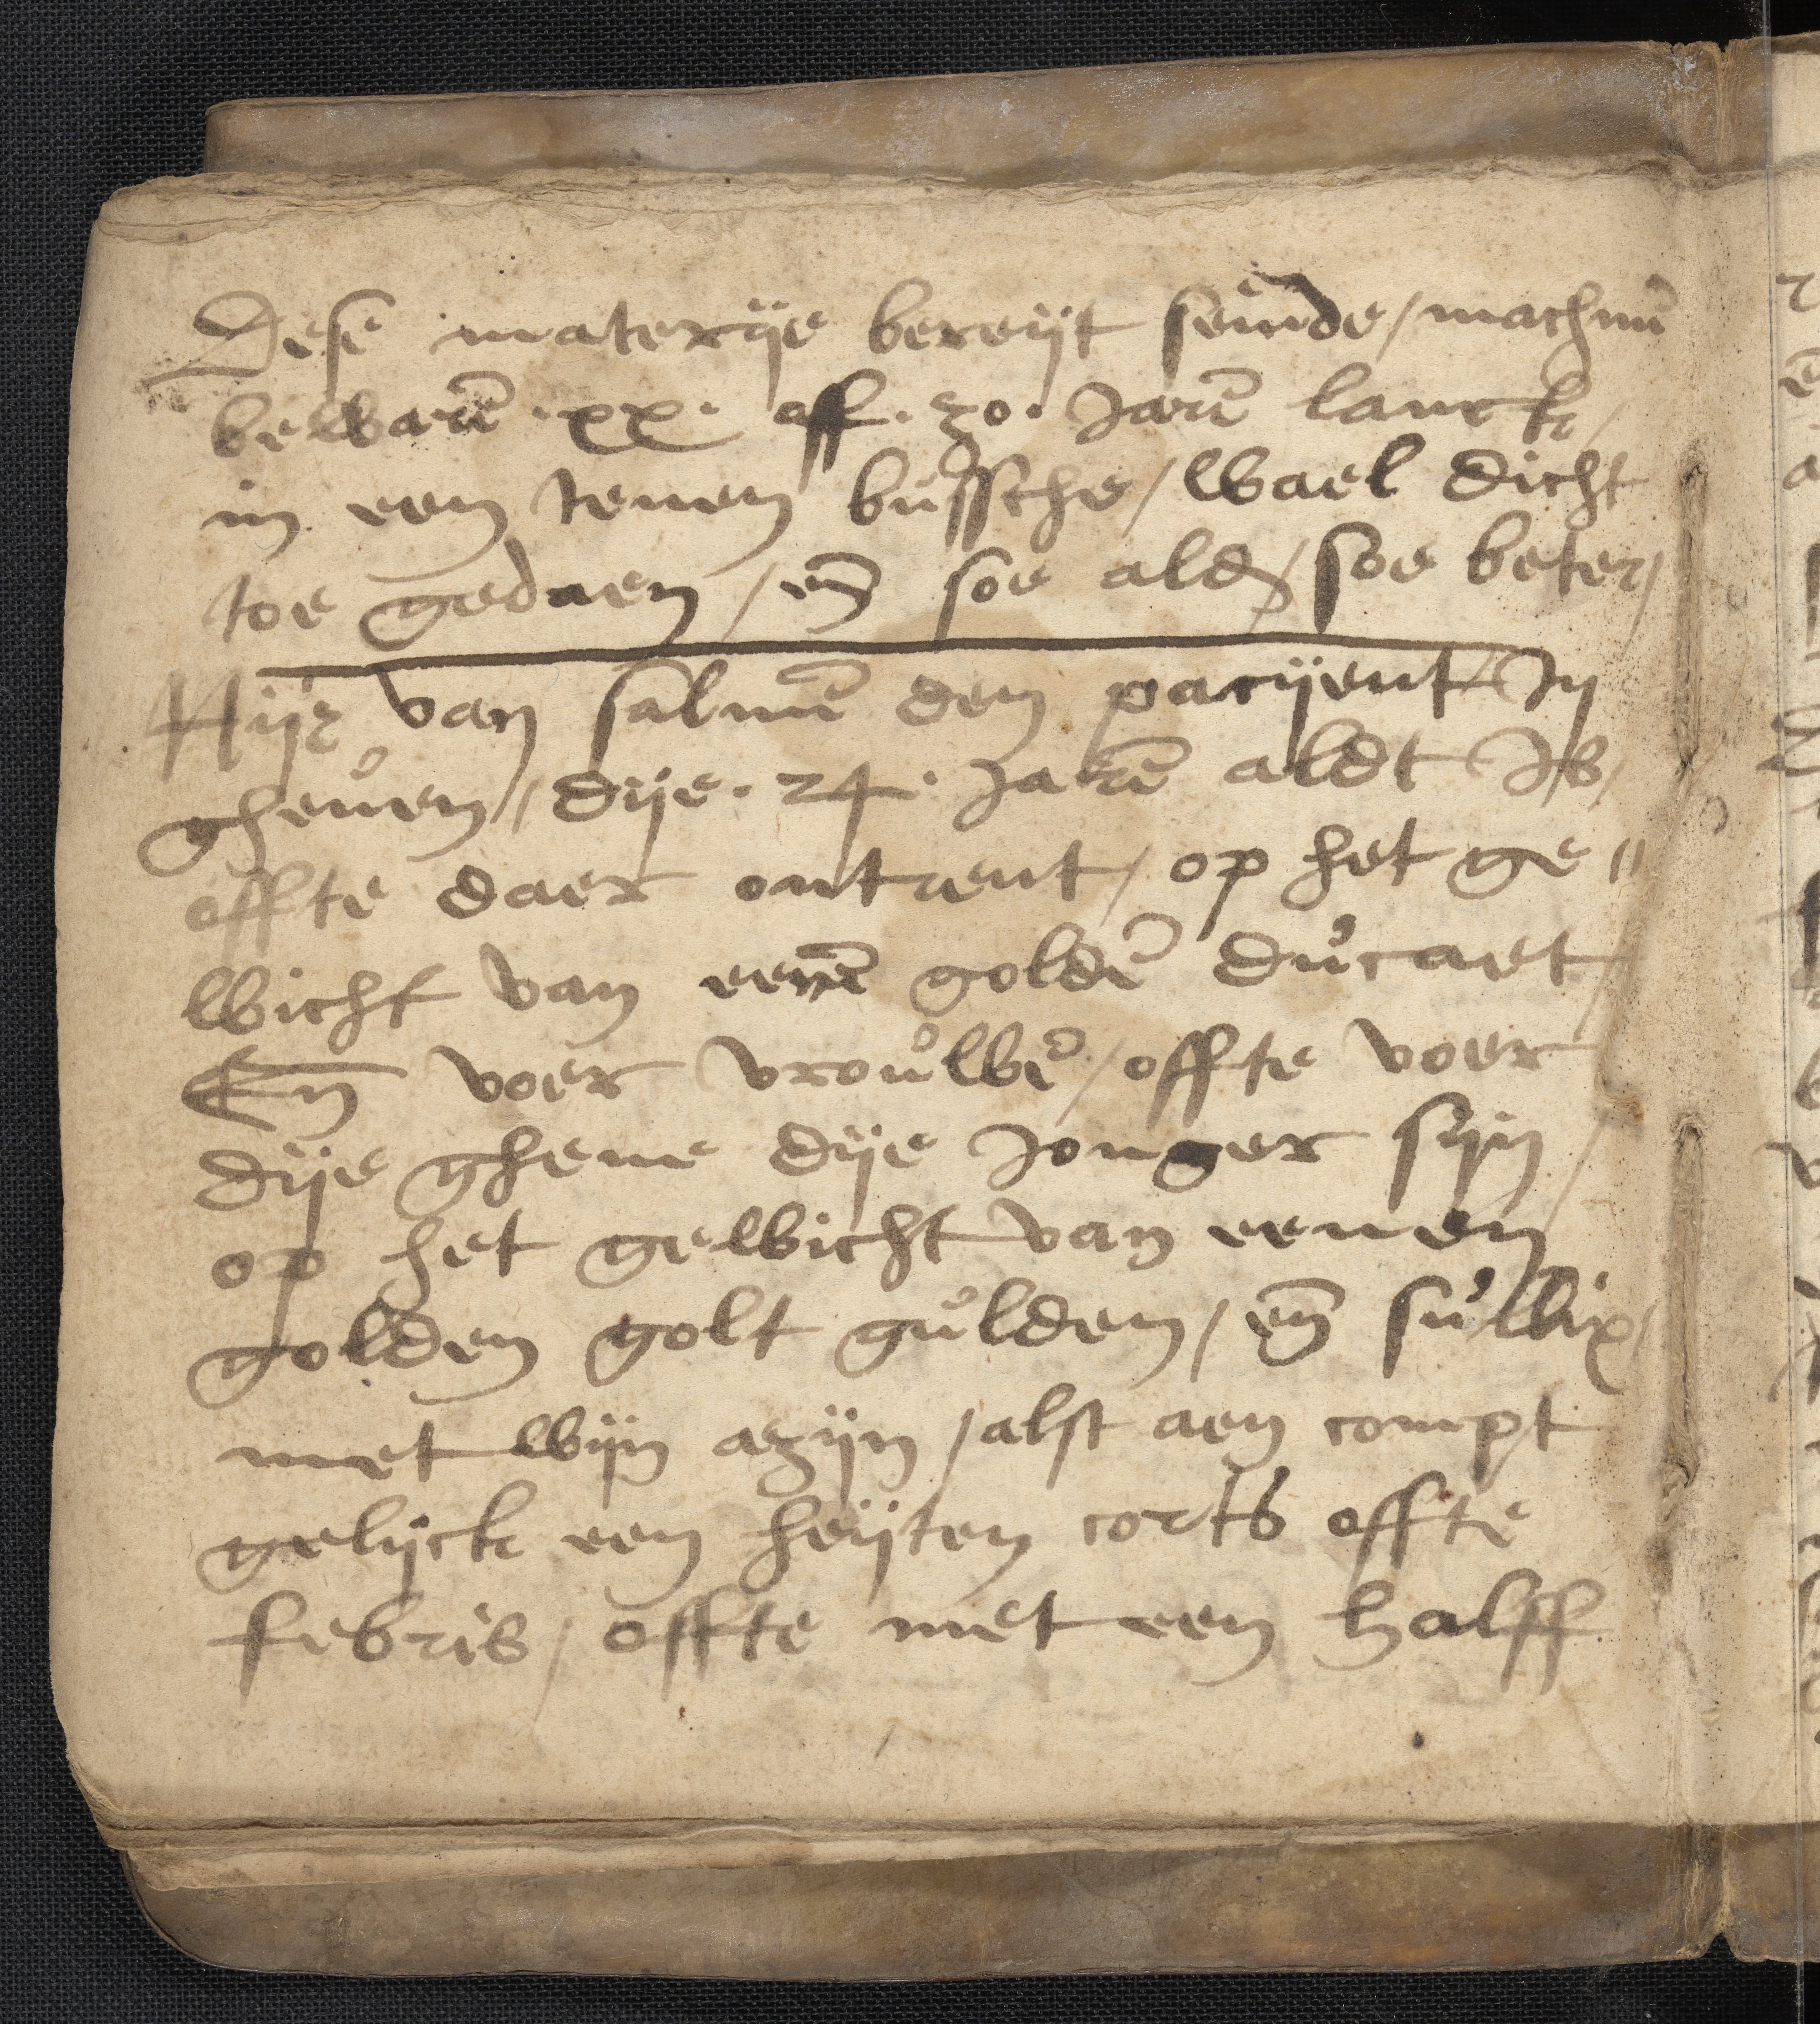 Dese materije bereijt seinde / machmē
bewarē · xx · off · 30 · Jarē lanck /
in een tenen bůssche / wael dicht
toe gedaen / eñ soe alder / soe beter /
Hijr van salmē den pacijent In
gheůen / dije · 24 · Jarē aldt Is /
offte daer ontrent / op het ge〃
wicht van eenē goldē důcaet /
Eñ voer vroůwē / offte voer
dije ghene dije Jonger sijn /
op het gewicht van eenen
golden golt gůlden / eñ sůllix /
met wijn azijn / alst aen compt
gelijck een heijten corts offte
febris / offte met een halff